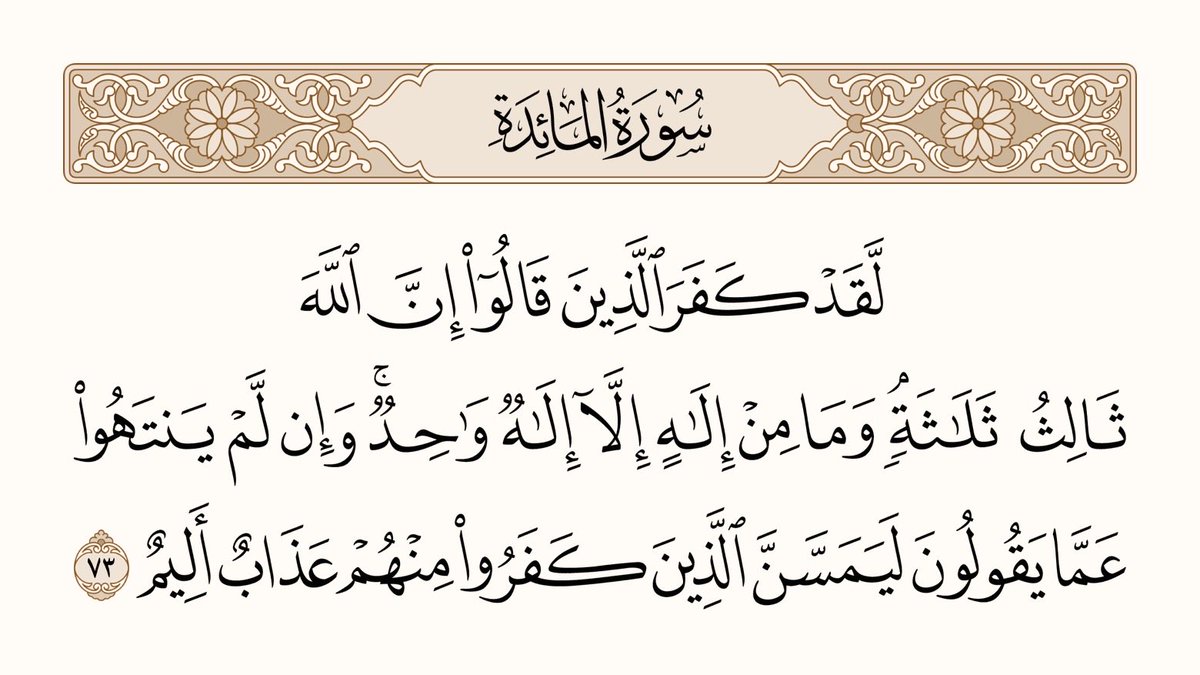 سُورَةُ المَائِدَةِ
لَّقَدۡ كَفَرَ ٱلَّذِينَ قَالُوٓاْ إِنَّ ٱللَّهَ
ثَالِثُ ثَلَٰثَةٖۘ وَمَا مِنۡ إِلَٰهٍ إِلَّآ إِلَٰهٞ وَٰحِدٞۚ وَإِن لَّمۡ يَنتَهُواْ
عَمَّا يَقُولُونَ لَيَمَسَّنَّ ٱلَّذِينَ كَفَرُواْ مِنۡهُمۡ عَذَابٌ أَلِيمٌ ٧٣